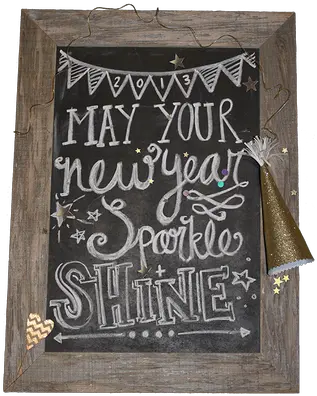 2013
MAY YOUR
new year
Sparkle
+
SHINE